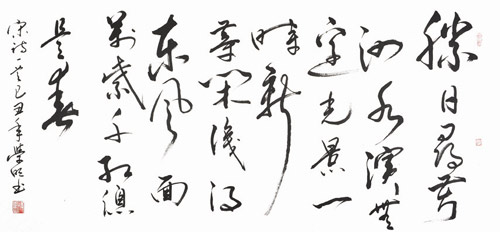 勝日尋芳
泗水濱無
邊光景一
時新
等閒識得
東風面
萬紫千紅總
是春
宋詩一首己丑年榮書